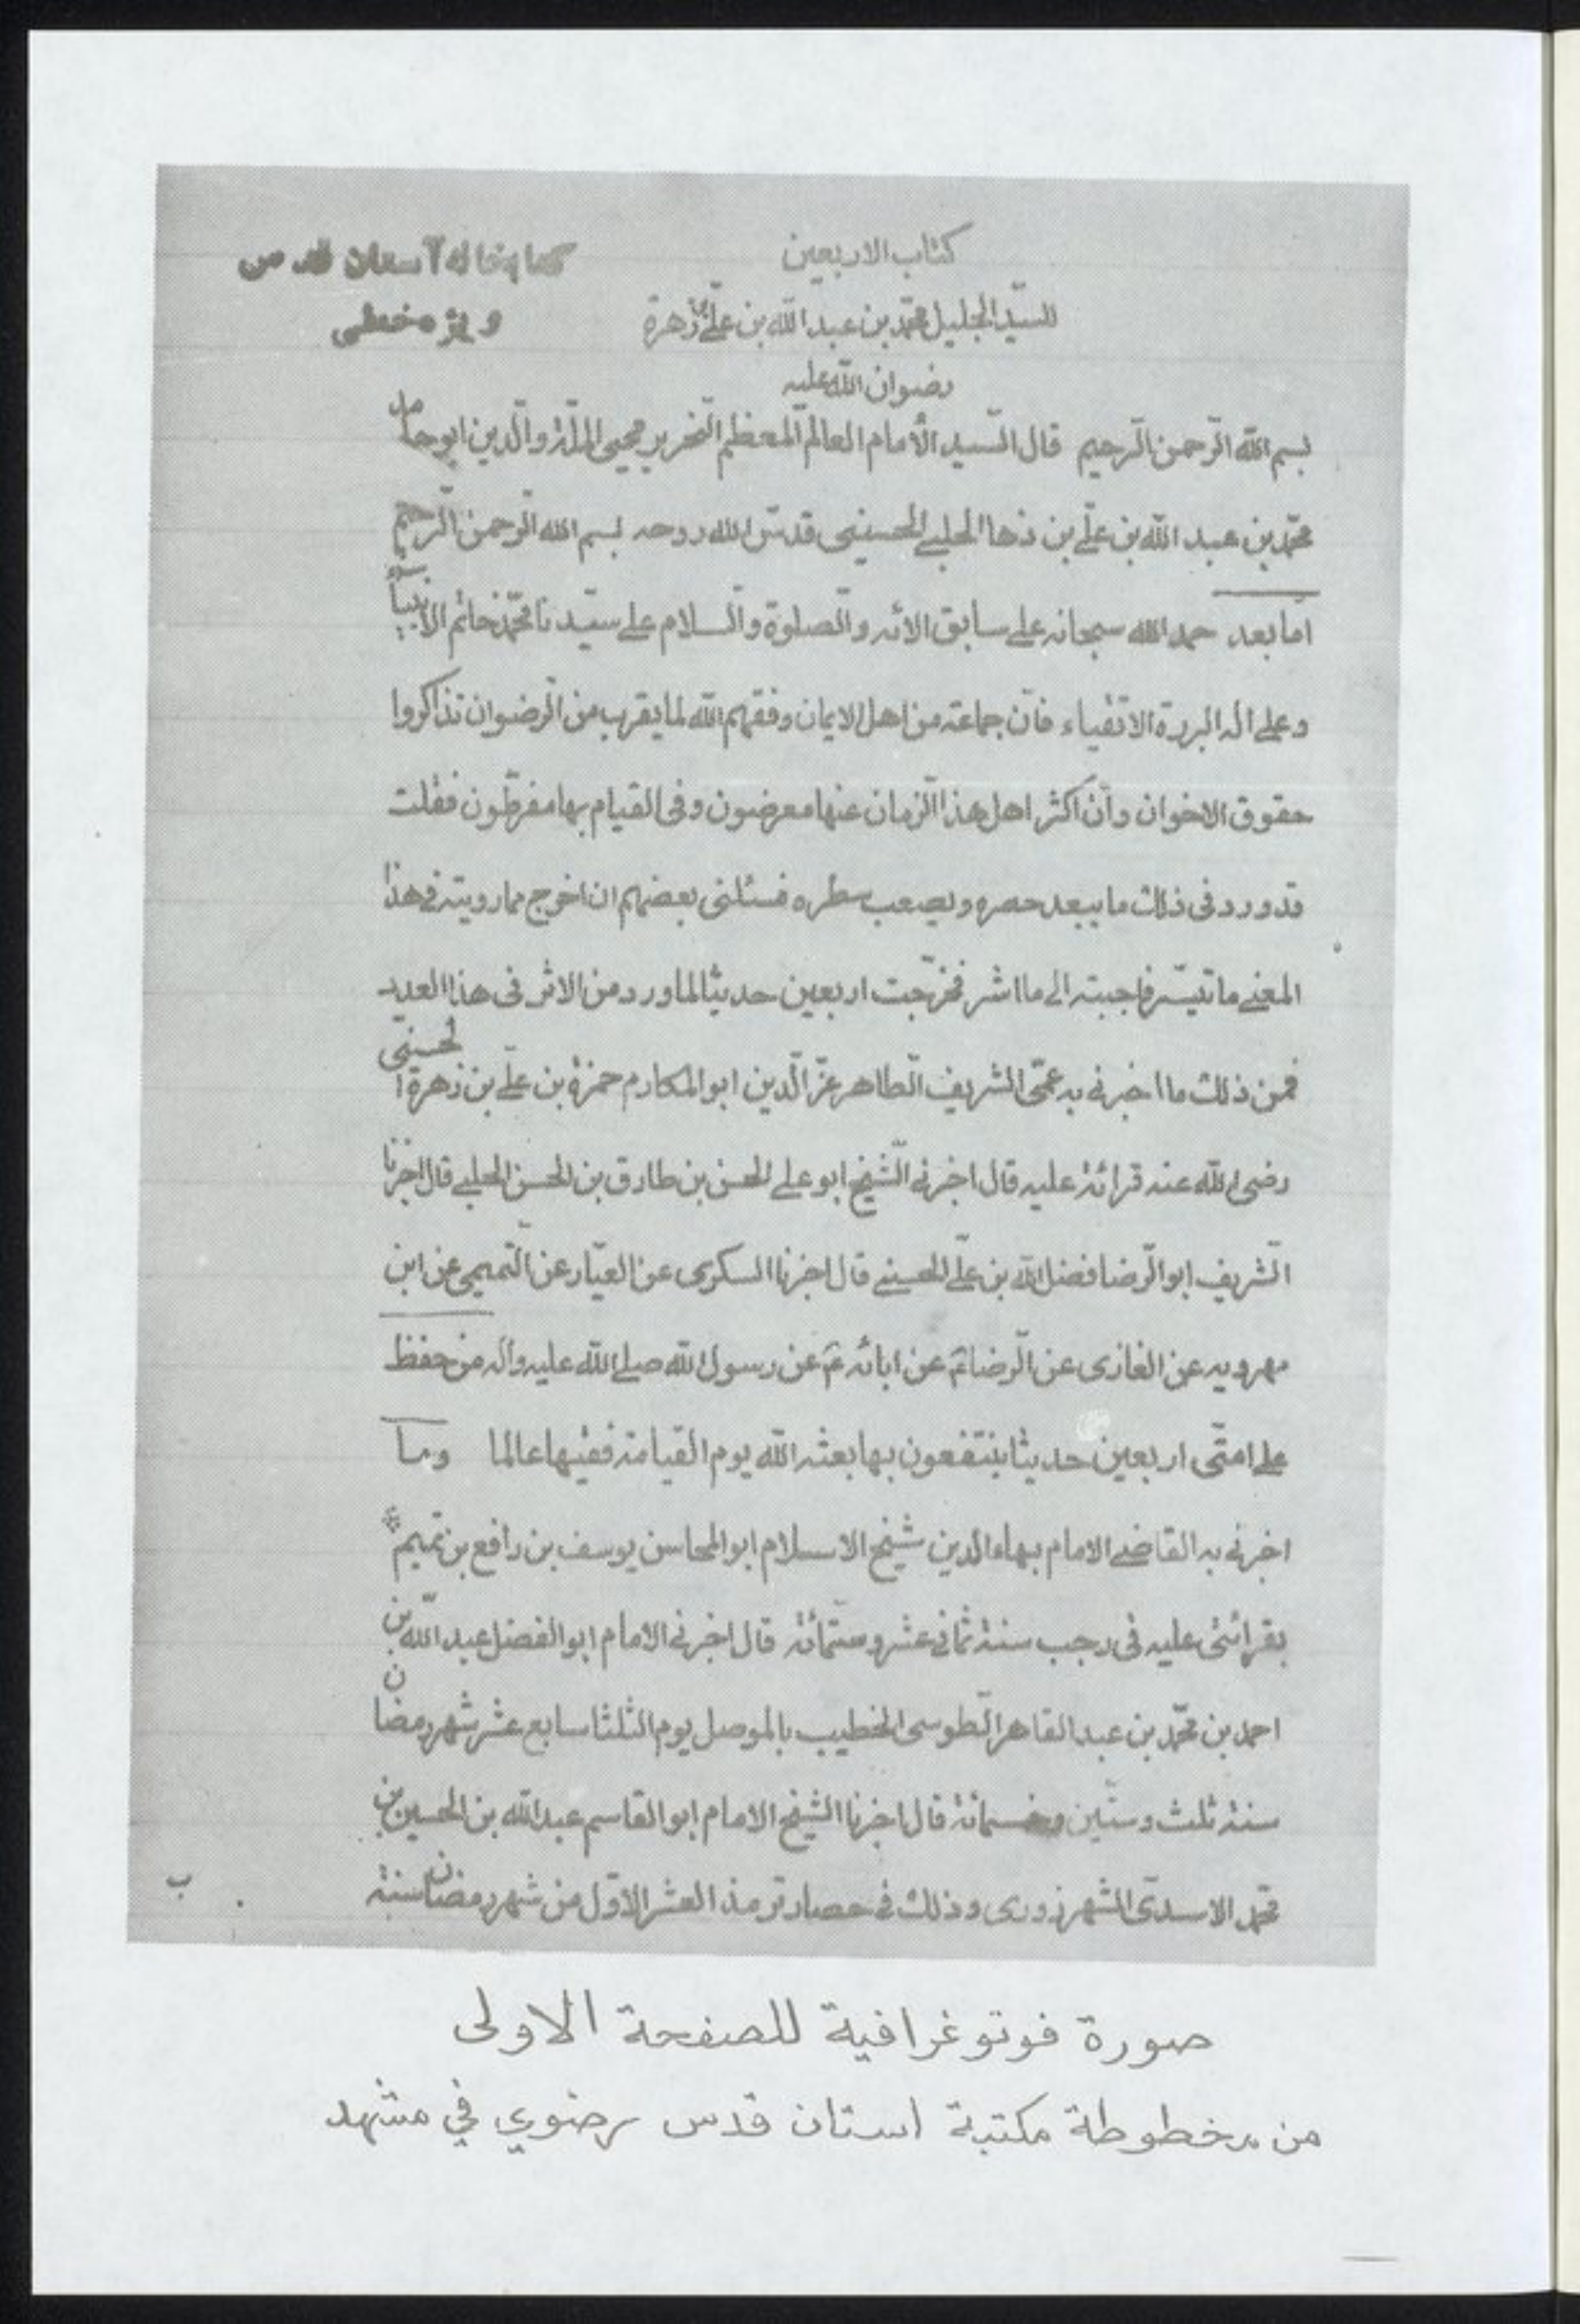 كتاب الاربعين
كتابخانه آستان قدس
للسيّد الجليل محمّد بن عبد الله بن علّي بن زهرة
ويژه خطى
رضوان الله عليه
بسم الله الرّحمن الرّحيم قال السّيد الأمام العالم المعظم النّحرير محيى الملّة والّدين ابو حامد
محمّد بن عبد الله بن علّي بن زها الحلبے الحسينى قدسّ الله روحه بسم الله الرّحمن الرّحيم
امّا بعد حمد الله سبحانه على سابق الائه والصّلوة والسّلام على سيّدنا محمّد خاتم الانبياء
وعلى اله البررة الاتقياء فانّ جماعة من اهل الايمان وفقهم الله لما يقرب من الرّضوان تذاكروا
حقوق الاخوان وانّ اكثر اهل هذا الزّمان عنها معرضون وفى القيام بها مفرطّون فقلت
قد ورد فى ذلك ما يبعد حصره ويصعب سطره فسئلنى بعضهم ان اخرج مما رويته فى هذا
المعنے ما تيسّر فاجبته الى ما اشر فخرّجت اربعين حديثا لما ورد من الاثر فى هذا العدد
فمن ذلك ما اخبرنى به عمّى الشريف الطّاهر عزّ الّدين ابو المكارم حمزة بن علّي بن زهرة الحسينّى
رضى الله عنه قرائة عليه قال اخبرنى الشّيخ ابو على الحسن بن طارق بن الحسن الحلبے قال اخبرنا
الشّريف ابو الرّضا فضل الله بن علّي الحسينے قال اخبرنا السكرى عن العيّار عن التّميمى عن ابن
مهرويه عن الغازى عن الرّضا عَ عن ابائه عَ عن رسول الله صلى الله عليه واله من حفظ
على امتّى اربعين حديثا ينتفعون بها بعثه الله يوم القيامة فقيها عالما وما
اخبرنى به القاضے الامام بهاء الدين شيخ الاسلام ابو المحاسن يوسف بن رافع بن تميم
بقرائتى عليه فى رجب سنة ثمانى عشر وستّمائة قال اخبرنى الامام ابو الفضل عبد الله بن
احمد بن محمّد بن عبد القاهر الطّوسى الخطيب بالموصل يوم الثلثا سابع عشر شهر رمضان
سنة ثلث وستّين وخسمائة قال اخبرنا الشيخ الامام ابو القاسم عبد الله بن الحسين بن
محمّد الاسدىّ الشهرزورى وذلك فى حصار ترمذ العشر الاوّل من شهر رمضان سنة
ب
صورة فوتوغرافية للصفحة الاولى
من مخطوطة مكتبة استان قدس رضوي في مشهد